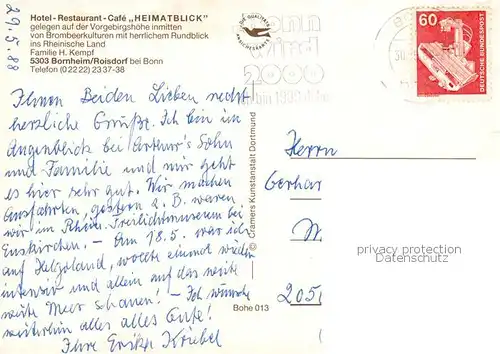 29.5.88
Hotel-Restaurant-Café „HEIMATBLICK"
gelegen auf der Vorgebirgshöhe inmitten
von Brombeerkulturen mit herrlichem Rundblick
ins Rheinische Land
Familie H. Kempf
5303 Bornheim/Roisdorf bei Bonn
Telefon (02222) 2337-38
Ihnen Beiden Lieben recht
herzliche Grüße. Ich bin im
Augenblick bei Arthur's Sohn
und Familie und mir geht
es hier sehr gut. Wir machen
Ausfahrten, gestern z. B. waren
wir im Rhein. Freilichtmuseum bei
Euskirchen. – Am 18.5. war ich
auf Helgoland, wollte einmal wieder
intensiv und allein auf das weite
weite Meer schauen! – Ich wünsche
weiterhin alles alles Gute!
Ihre
© Cramers Kunstanstalt Dortmund
Bohe 013
bonn
wird
2000
60
DEUTSCHE BUNDESPOST
Herrn
Gerhar
205
privacy protection
www.ansichtskarten-center.de